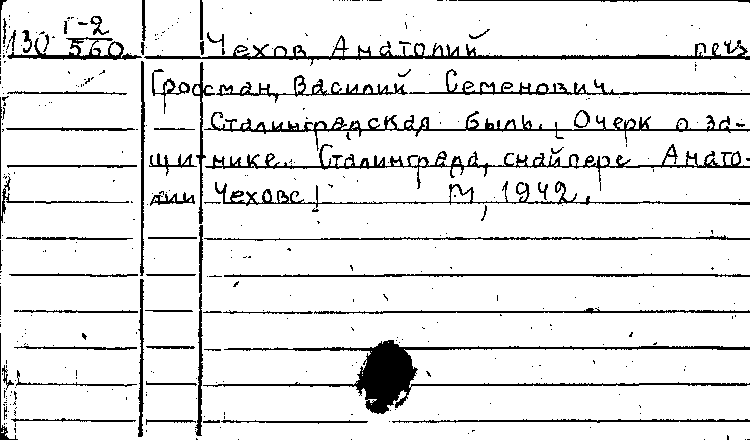 130 Г-2/560 Чехов, Анатолий перs
Гроссман, Василий Семенович.
Сталинградская быль. [Очерк о за-
щитнике Сталинграда, снайпере Анато-
лии Чехове]. М, 1942.